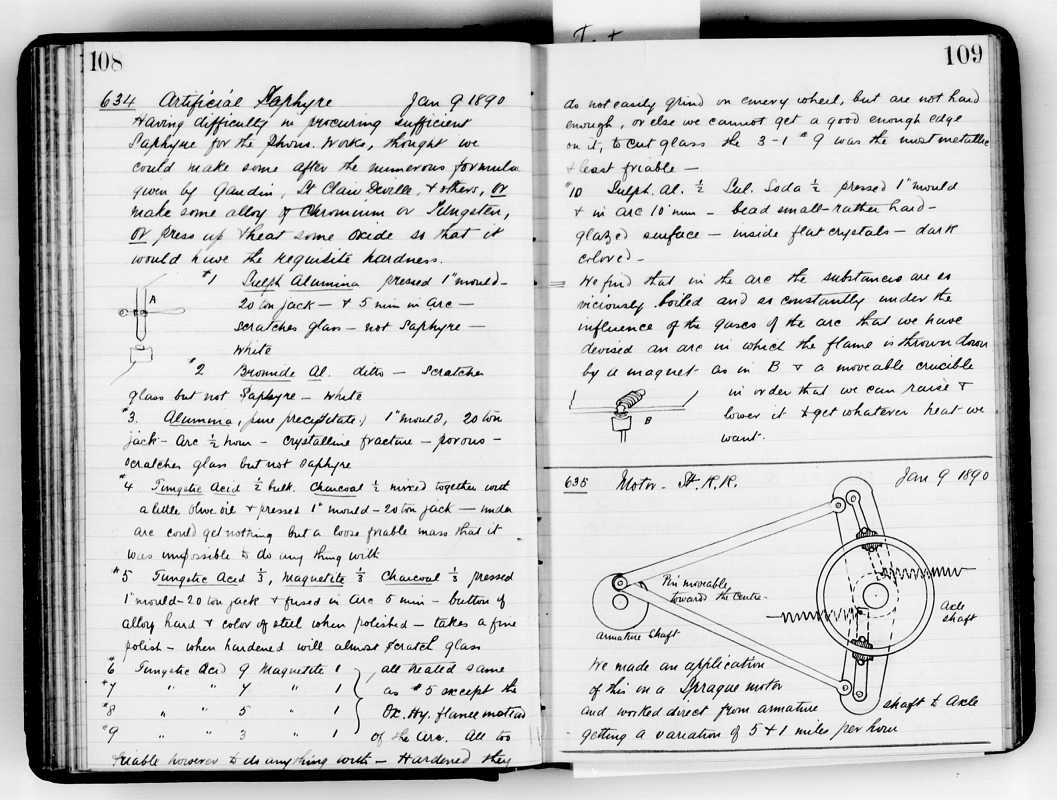 108
634 Artificial Saphyre Jan 9 1890
Having difficulty in procuring sufficient
Saphyre for the Phono. Works, thought we
could make some after the numerous formula
given by Gaudin, St Clair Deville, & others, or
make some alloy of Chromium or Tungsten,
or press up & heat some oxide so that it
would have the requisite hardness.
#1 Sulph Alumina pressed 1" mould-
A
20 ton jack — & 5 min in Arc —
scratches glass — not Saphyre —
White
#2 Bromide Al. ditto — Scratches
glass but not Saphyre — White
#3. Alumina, (pure precipitate) 1" mould, 20 ton
jack - Arc ½ hour - crystalline fracture - porous -
scratches glass but not saphyre
#4 Tungstic Acid ½ bulk. Charcoal ½ mixed together with
a little olive oil & pressed 1" mould - 20 ton jack — under
arc could get nothing but a loose friable mass that it
was unpossible to do any thing with
#5 Tungstic Acid ⅓, Magnetite ⅓ Charcoal ⅓ pressed
1" mould - 20 ton jack & fused in Arc 5 min - button of
alloy hard & color of steel when polished - takes a fine
polish - when hardened will almost scratch glass
#6 Tungstic Acid 9 Magnetite 1 all treated same
#7 " " 7 " 1 as #5 except the
#8 " " 5 " 1 Ox. Hy. flame instead
#9 " " 3 " 1 of the Arc. All too
friable however to do anything with - Hardened they
109
do not easily grind on emery wheel, but are not hard
enough, or else we cannot get a good enough edge
on it, to cut glass the 3-1 #9 was the most metallic
& least friable —
#10 Sulph. Al. ½ Sul. Soda ½ pressed 1" mould
& in Arc 10 min — bead small - rather hard -
glazed surface — inside flat crystals — dark
colored -
= We find that in the arc the substances are so
viciously boiled and so constantly under the
influence of the gases of the arc that we have
devised an arc in which the flame is thrown down
by a magnet as in B & a moveable crucible
in order that we can raise &
lower it & get whatever heat we
want.
B
635 Motor - St. R.R. Jan 9 1890
Pin moveable
towards the centre-
Armature Shaft
Axle
shaft
shaft to Axle
We made an application
of this on a Sprague motor
and worked direct from armature
getting a variation of 5 & 1 miles per hour